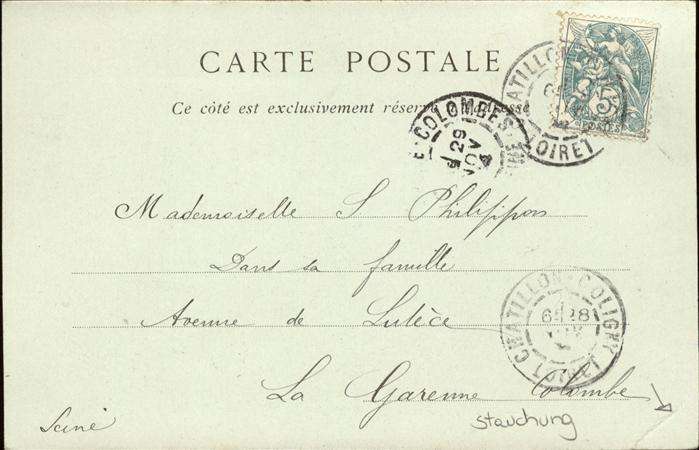 CARTE POSTALE
Ce côté est exclusivement réservé à l'adresse
CHATILLON
LOIRET
COLOMBES
29
NOV
POSTES
Mademoiselle S Philippon
Dans sa famille
Avenue de Lutèce
La Garenne Colombe
Seine
CHATILLON-COLIGNY
28
LOIRET
Stauchung